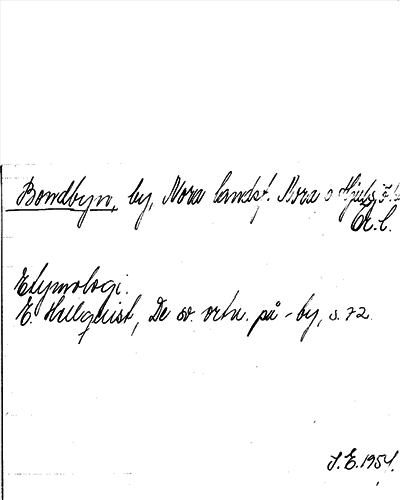 Bondbyn, by, Nora landsf. Nora o Hjulsjö
Ör. l.
Etymologi.
E. Hellquist, De sv. ortn. på -by, s. 72.
S. E. 1954.